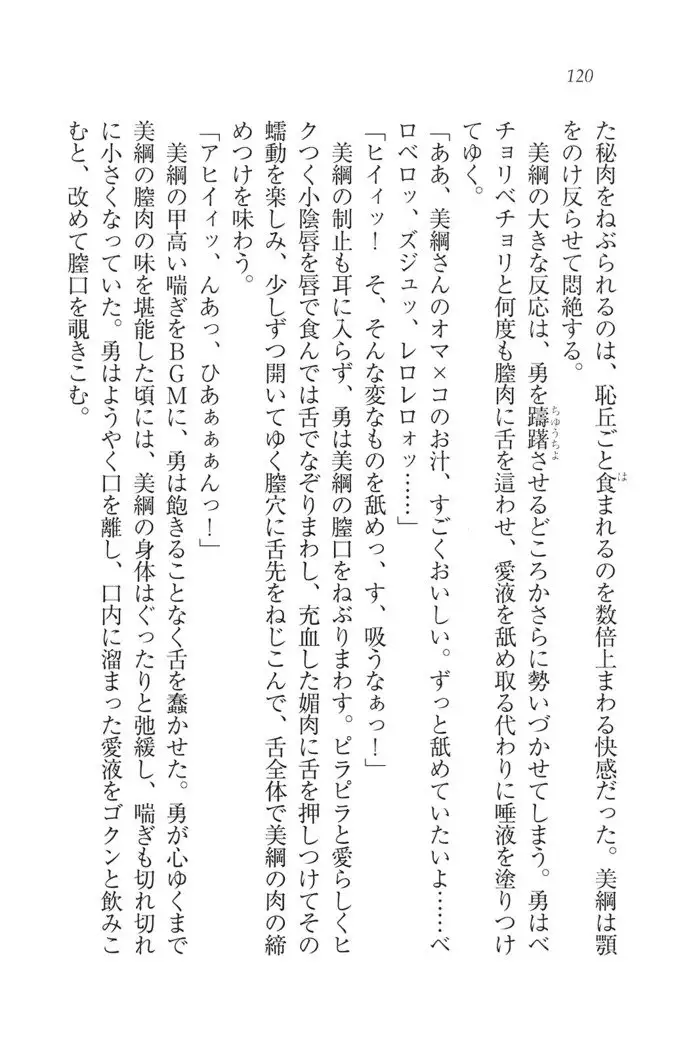 120
た秘肉をねぶられるのは、恥丘ごと食まれるのを数倍上まわる快感だった。美綱は顎
は
をのけ反らせて悶絶する。
美綱の大きな反応は、勇を躊躇させるどころかさらに勢いづかせてしまう。勇はベ
ちゆうちよ
チョリベチョリと何度も膣肉に舌を這わせ、愛液を舐め取る代わりに唾液を塗りつけ
てゆく。
「ああ、美綱さんのオマ×コのお汁、すごくおいしい。ずっと舐めていたいよ……ベ
ロベロッ、ズジュッ、レロレロォッ……」
「ヒイィッ！　そ、そんな変なものを舐めっ、す、吸うなぁっ！」
美綱の制止も耳に入らず、勇は美綱の膣口をねぶりまわす。ピラピラと愛らしくヒ
クつく小陰唇を唇で食んでは舌でなぞりまわし、充血した媚肉に舌を押しつけてその
蠕動を楽しみ、少しずつ開いてゆく膣穴に舌先をねじこんで、舌全体で美綱の肉の締
めつけを味わう。
「アヒイィッ、んあっ、ひあぁぁぁんっ！」
美綱の甲高い喘ぎをＢＧＭに、勇は飽きることなく舌を蠢かせた。勇が心ゆくまで
美綱の膣肉の味を堪能した頃には、美綱の身体はぐったりと弛緩し、喘ぎも切れ切れ
に小さくなっていた。勇はようやく口を離し、口内に溜まった愛液をゴクンと飲みこ
むと、改めて膣口を覗きこむ。